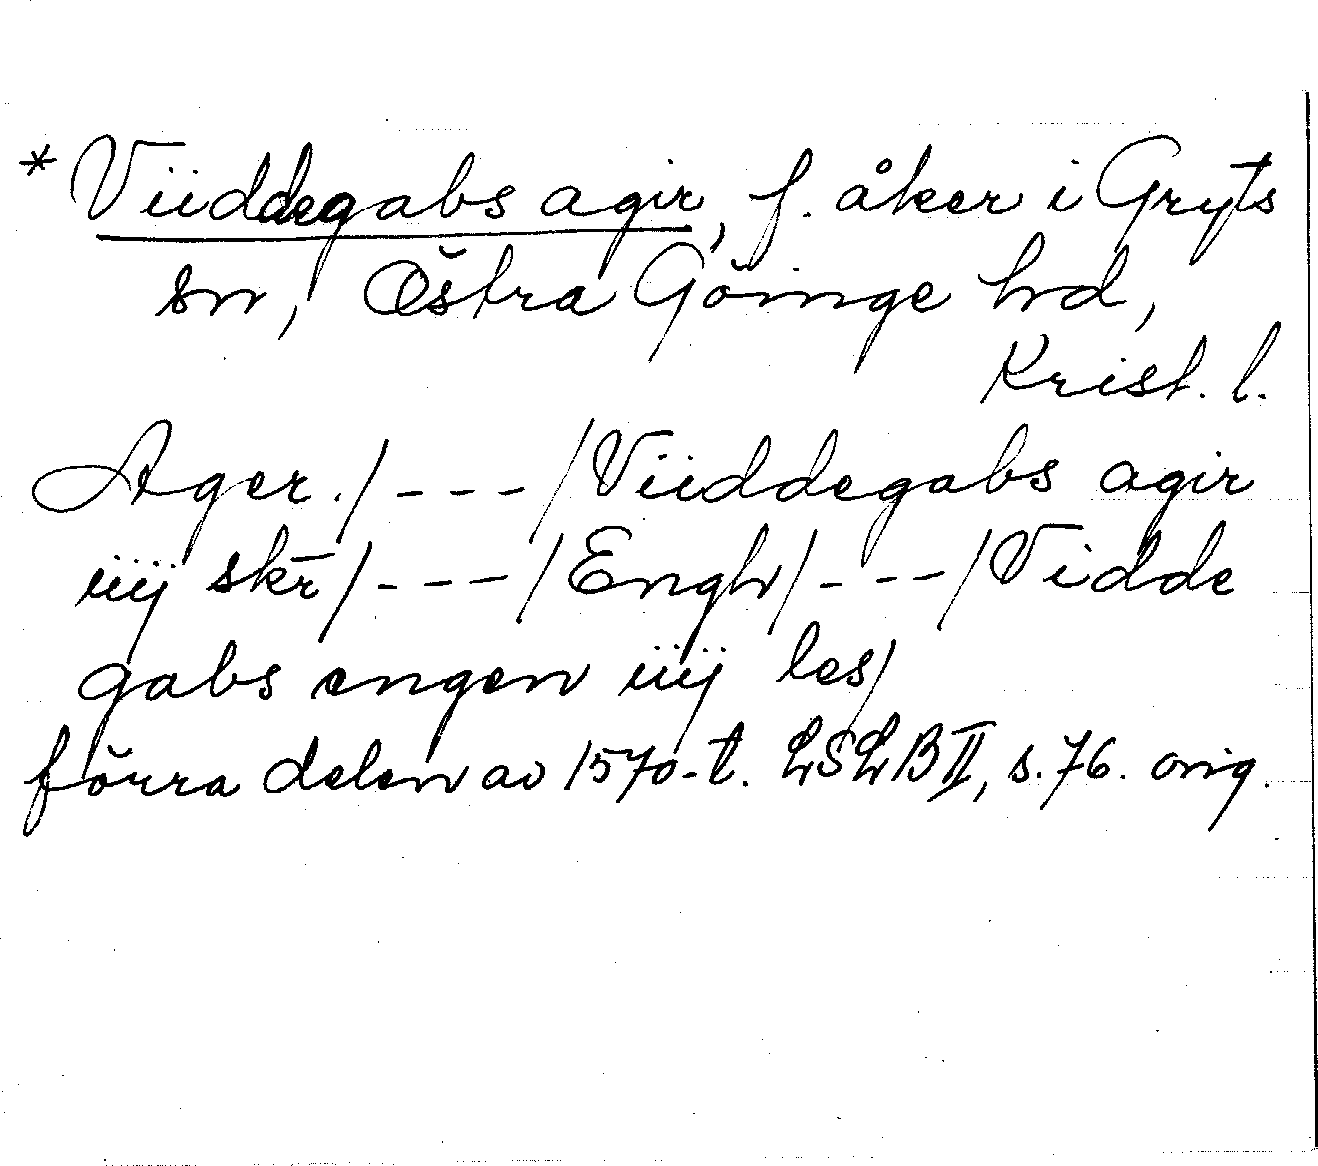 * Viiddegabs agir, f. åker i Gryts
sn, Östra Göinge hd,
Krist. l.
Ager./---/Viiddegabs agir
iiij skr̄/---/Engh/---/Vidde
gabs engen iiij les/
förra delen av 1570-t. LSLB II, s. 76. orig.